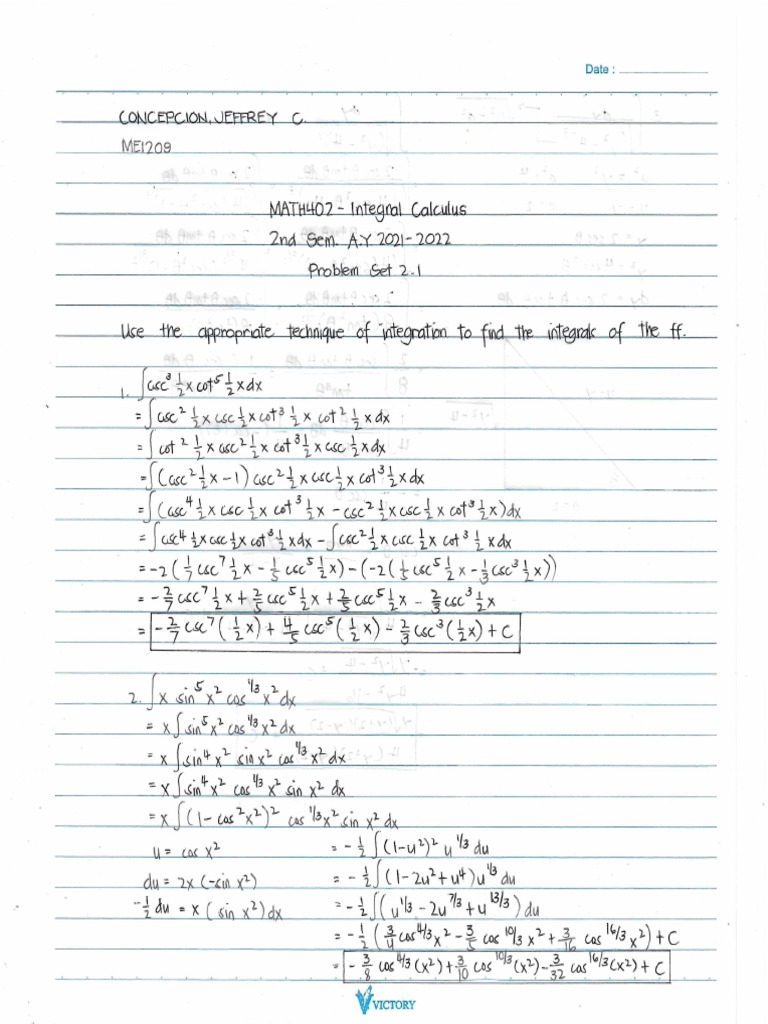 Date :
CONCEPCION, JEFFREY C.
ME1209
MATH402 - Integral Calculus
2nd Sem. A.Y 2021-2022
Problem Set 2.1
Use the appropriate technique of integration to find the integrals of the ff.
1. ∫csc³ ½x cot⁵ ½x dx
= ∫csc² ½x csc ½x cot³ ½x cot² ½x dx
= ∫cot² ½x csc² ½x cot³ ½x csc ½x dx
= ∫(csc² ½x - 1) csc² ½x csc ½x cot³ ½x dx
= ∫(csc⁴ ½x csc ½x cot³ ½x - csc² ½x csc ½x cot³ ½x)dx
= ∫csc⁴ ½x csc ½x cot³ ½x dx - ∫csc² ½x csc ½x cot³ ½x dx
= -2(1/7 csc⁷ ½x - 1/5 csc⁵ ½x) - (-2(1/5 csc⁵ ½x - 1/3 csc³ ½x))
= -2/7 csc⁷ ½x + 2/5 csc⁵ ½x + 2/5 csc⁵ ½x - 2/3 csc³ ½x
= -2/7 csc⁷(½x) + 4/5 csc⁵(½x) - 2/3 csc³(½x) + C
2. ∫x sin⁵ x² cos^1/3 x² dx
= x∫sin⁵ x² cos^1/3 x² dx
= x∫sin⁴ x² sin x² cos^1/3 x² dx
= x∫sin⁴ x² cos^1/3 x² sin x² dx
= x∫(1 - cos² x²)² cos^1/3 x² sin x² dx
u = cos x² = -½∫(1-u²)² u^1/3 du
du = 2x(-sin x²) = -½∫(1-2u²+u⁴)u^1/3 du
-½ du = x(sin x²)dx = -½∫(u^1/3 - 2u^7/3 + u^13/3)du
= -½(3/4 cos^4/3 x² - 3/5 cos^10/3 x² + 3/16 cos^16/3 x²) + C
= -3/8 cos^4/3 (x²) + 3/10 cos^10/3 (x²) - 3/32 cos^16/3 (x²) + C
VICTORY